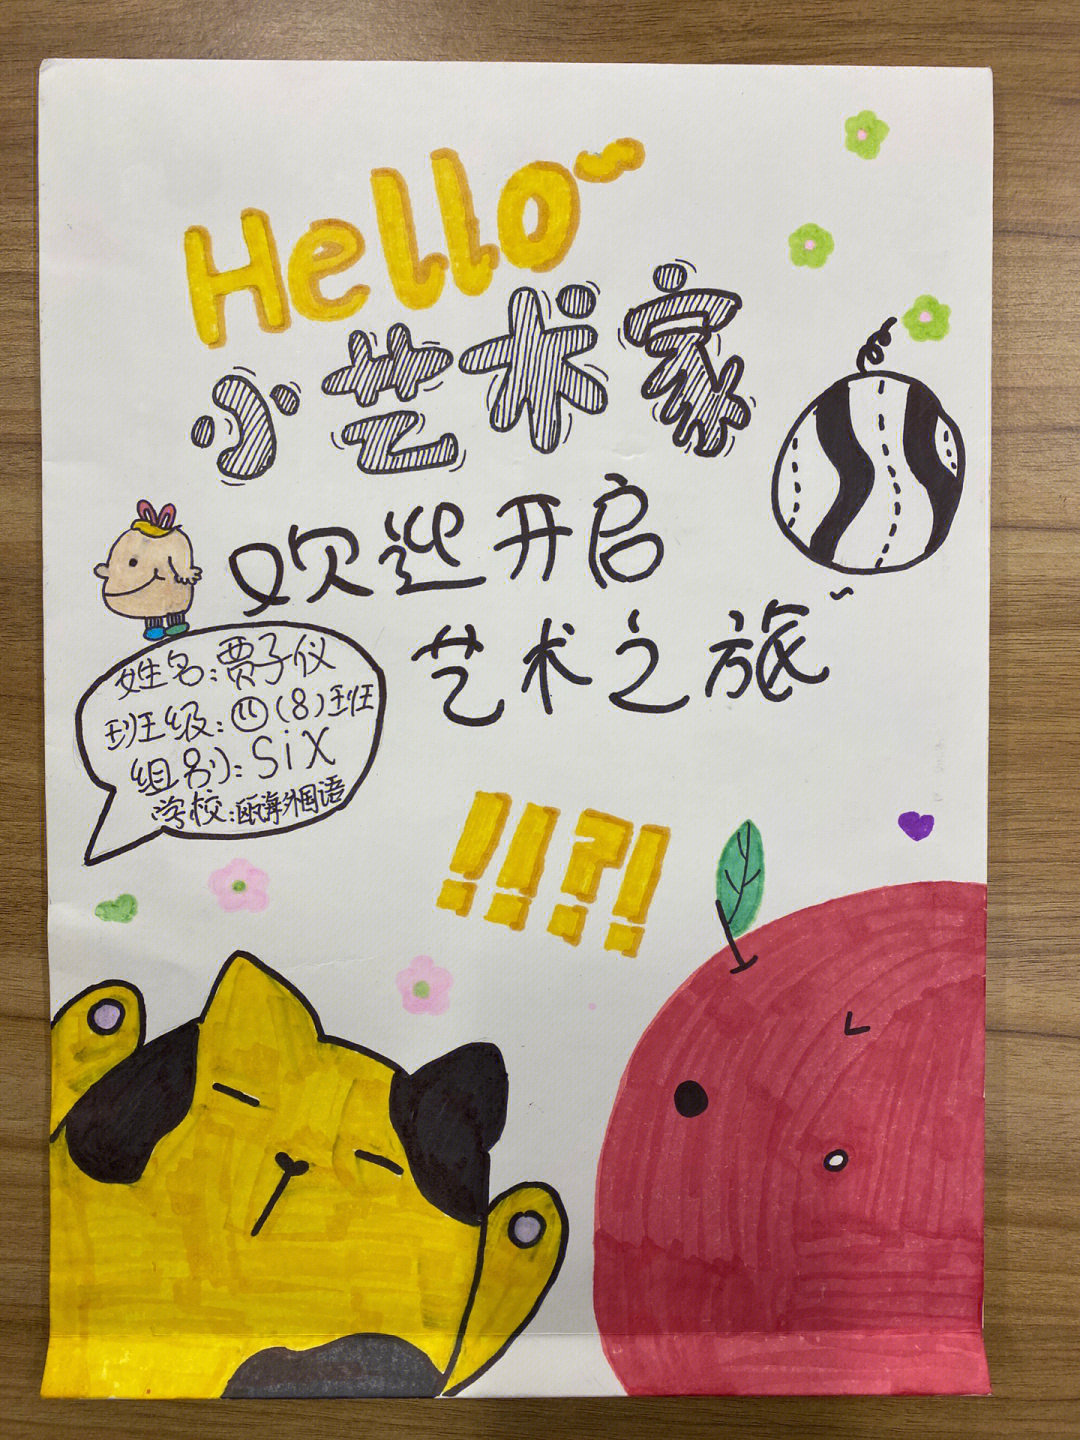 Hello~
小艺术家
欢迎开启
艺术之旅~
姓名:贾子仪
班级:四(8)班
组别:Six
学校:瓯海外国语
!!?!